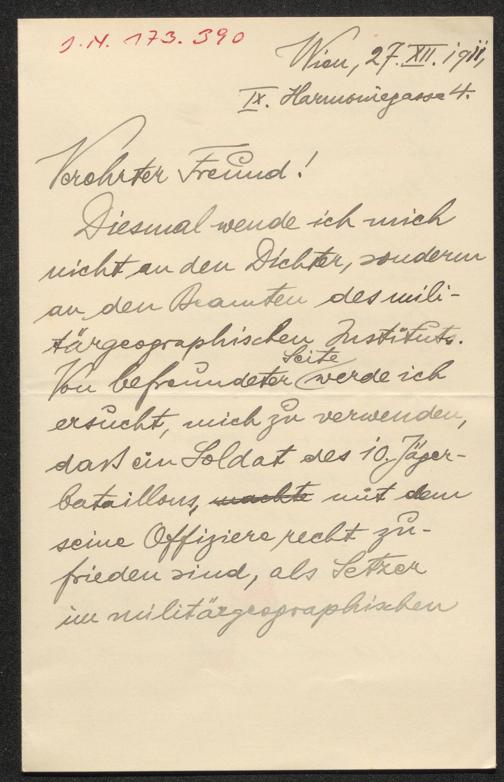 J.N. 173.390
Wien, 27. XII. 1911,
IX. Harmoniegasse 4.
Verehrter Freund!
Diesmal wende ich mich
nicht an den Dichter, sondern
an den Beamten des mili-
tärgeographischen Instituts.
Seite
Von befreundeter werde ich
ersucht, mich zu verwenden,
daß ein Soldat des 10. Jäger-
bataillons, machte mit dem
seine Offiziere recht zu-
frieden sind, als Setzer
im militärgeographischen